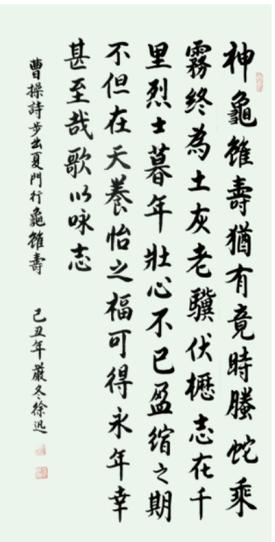 神龜雖壽猶有竟時螣蛇乘
霧終為土灰老驥伏櫪志在千
里烈士暮年壯心不已盈縮之期
不但在天養怡之福可得永年幸
甚至哉歌以咏志
曹操詩步出夏門行龜雖壽 己丑年嚴冬徐迅